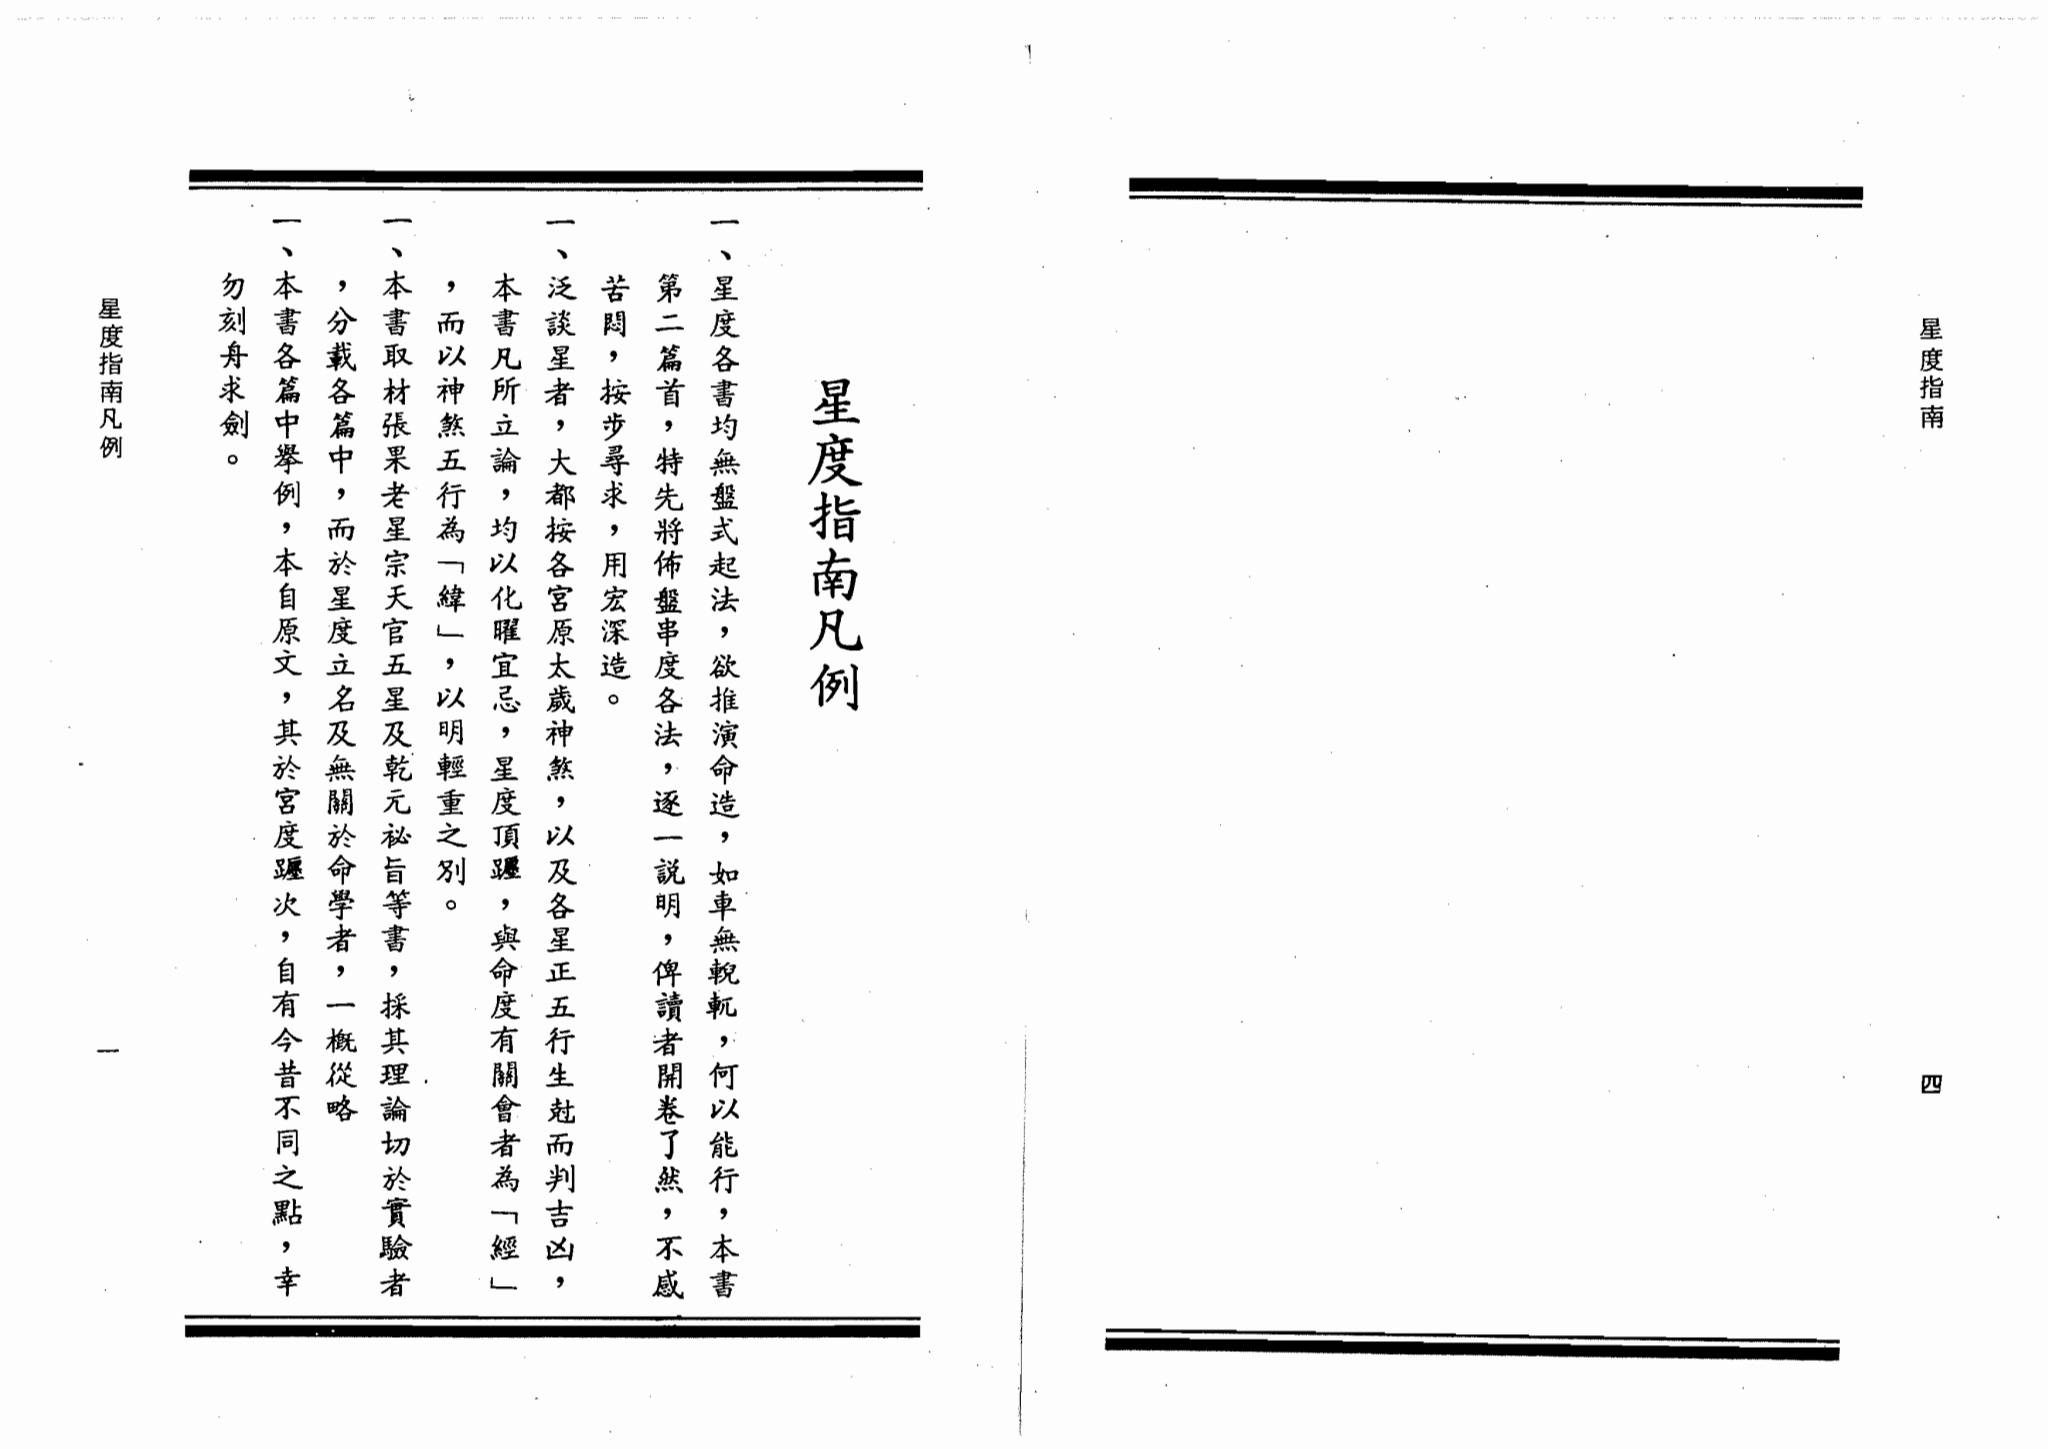 星度指南
四
星度指南凡例
一、星度各書均無盤式起法，欲推演命造，如車無輗軏，何以能行，本書
第二篇首，特先將佈盤串度各法，逐一説明，俾讀者開卷了然，不感
苦悶，按步尋求，用宏深造。
一、泛談星者，大都按各宮原太歲神煞，以及各星正五行生尅而判吉凶，
本書凡所立論，均以化曜宜忌，星度頂躔，與命度有關會者為「經」
，而以神煞五行為「緯」，以明輕重之別。
一、本書取材張果老星宗天官五星及乾元祕旨等書，採其理論切於實驗者
，分載各篇中，而於星度立名及無關於命學者，一概從略
一、本書各篇中舉例，本自原文，其於宮度躔次，自有今昔不同之點，幸
勿刻舟求劍。
星度指南凡例
一